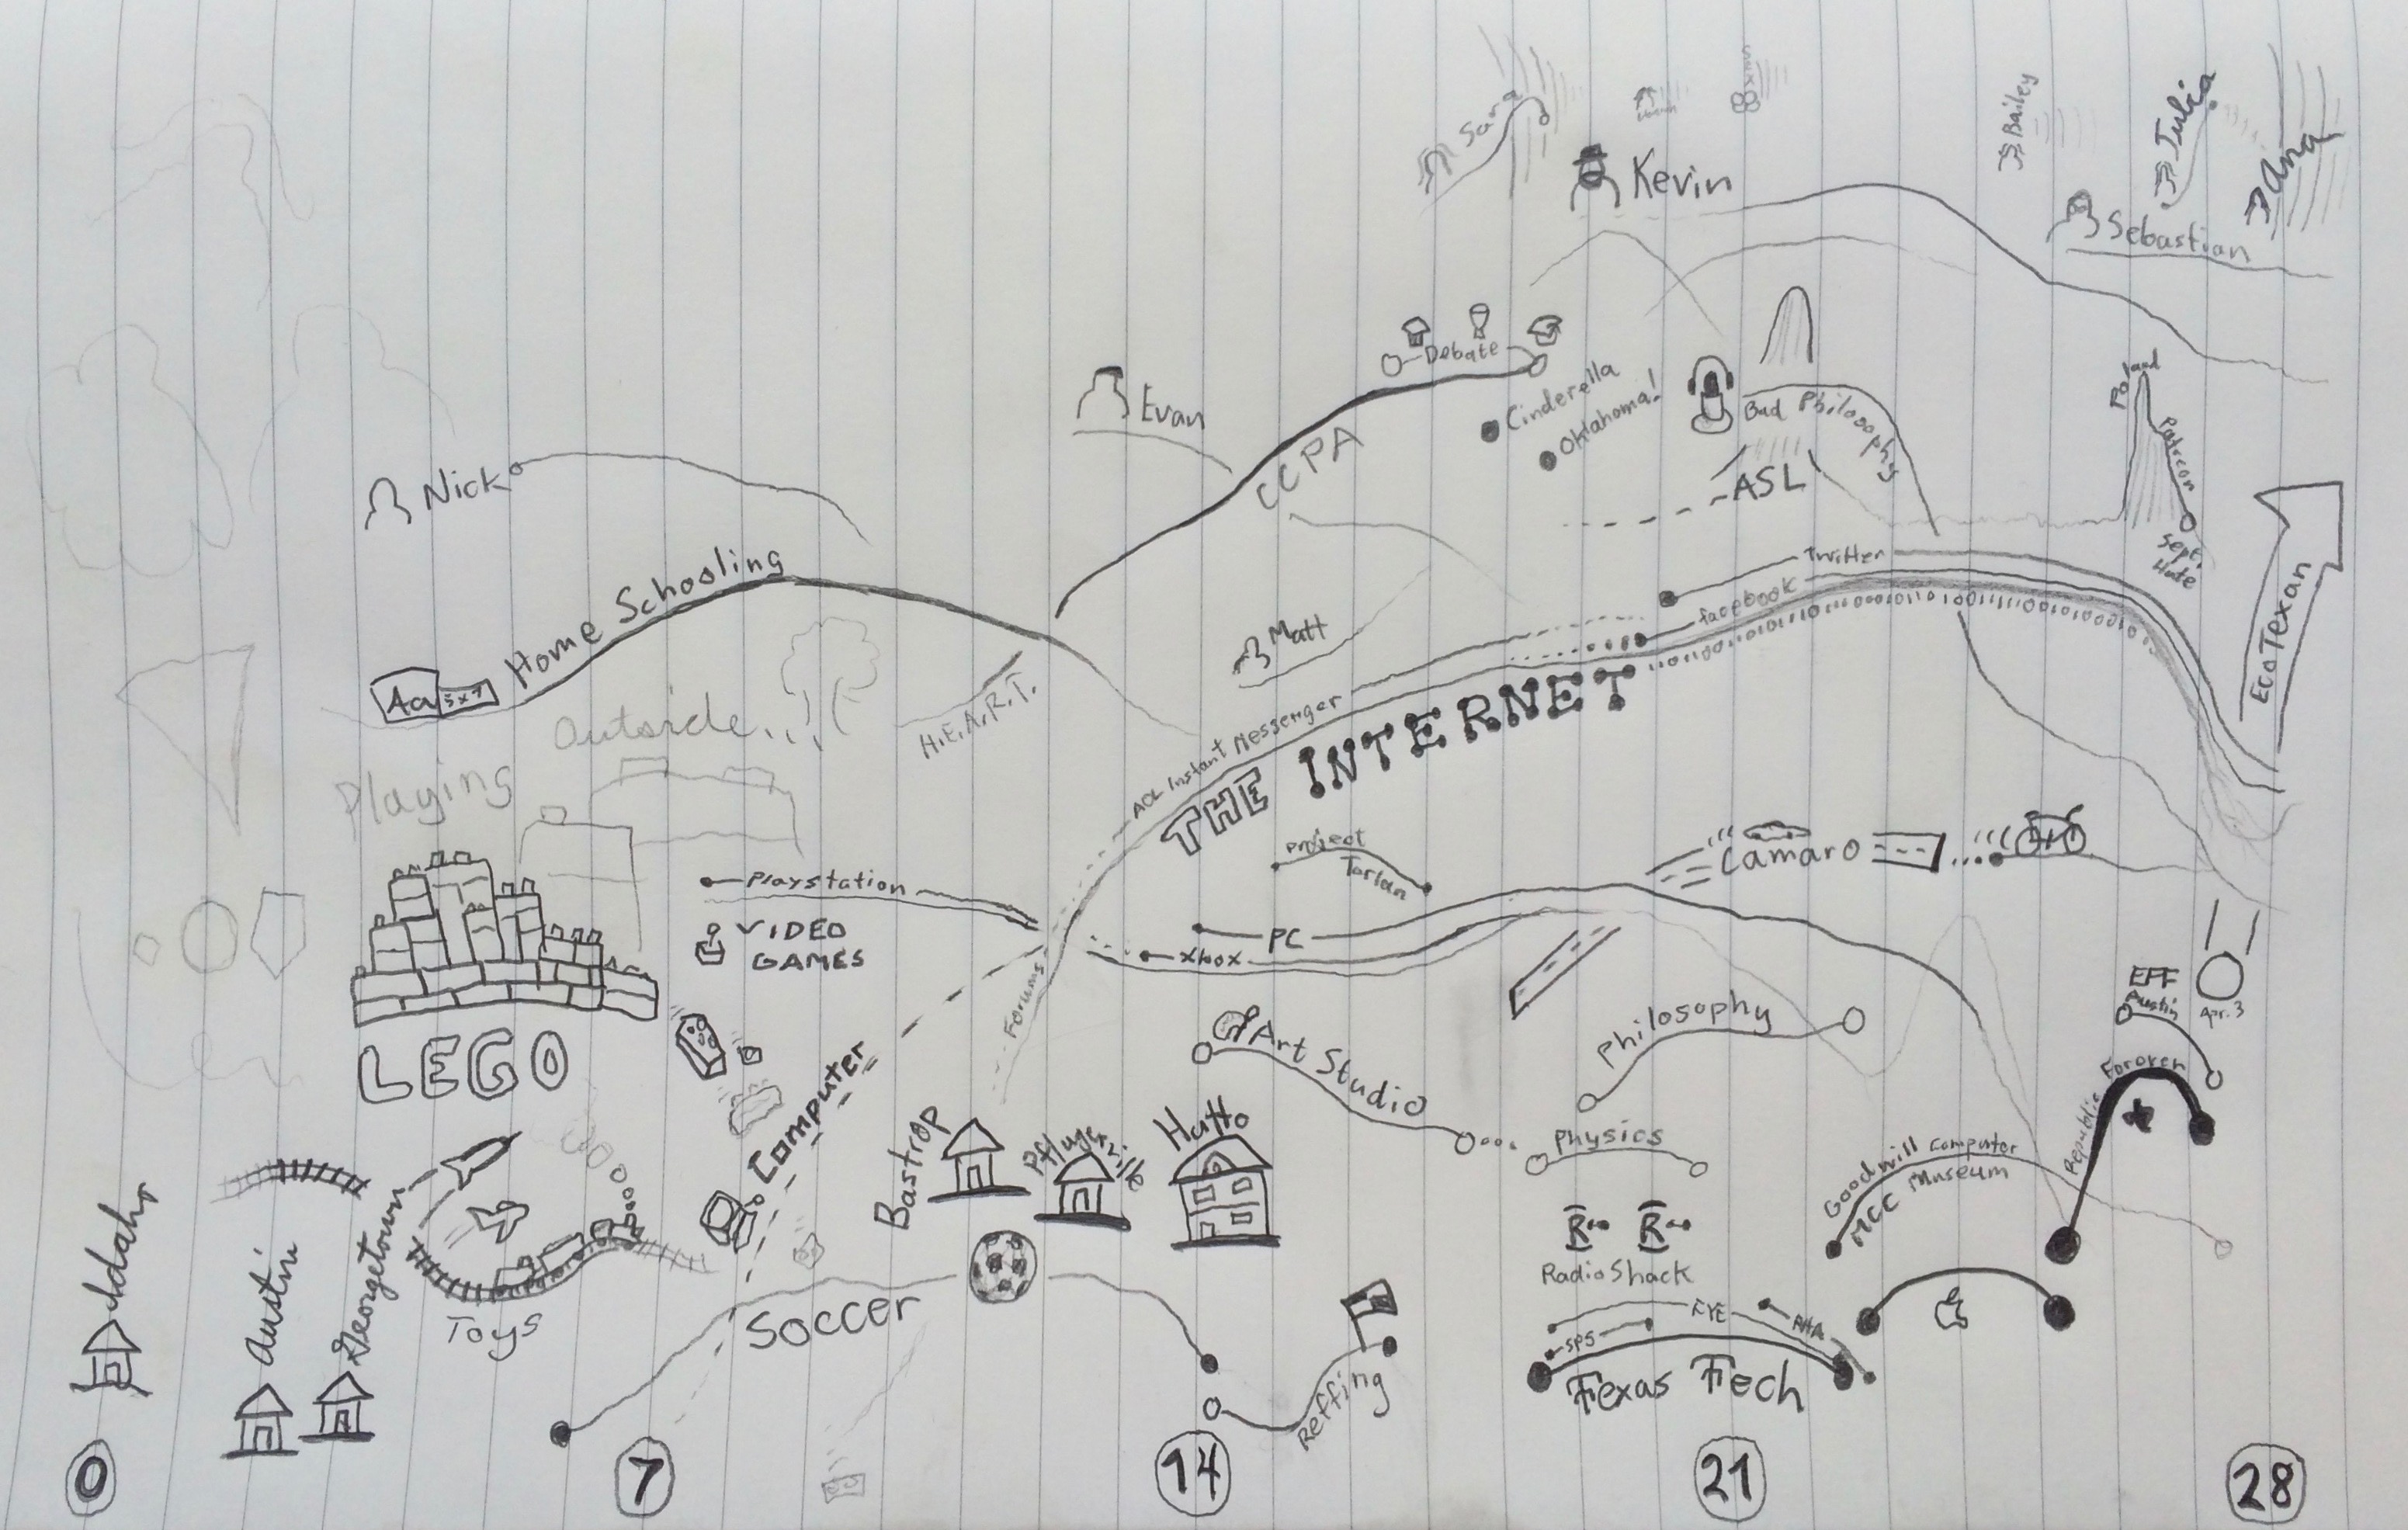 Sana
Kevin
Bailey
Julia
Ana
Sebastian
Nick
Evan
Debate
Cinderella
Oklahoma!
CCPA
Bad Philosophy
ASL
Poland
Patreon
Sept.
Hate
EcoTexan
Home Schooling
Aa
5x7
Outside
Playing
H.E.A.R.T.
Matt
Twitter
facebook
AOL Instant Messenger
THE INTERNET
Forums
Project
Torlan
Playstation
VIDEO
GAMES
PC
Xbox
Camaro
LEGO
Computer
Art Studio
Philosophy
Physics
EFF
Austin
Apr. 3
Republic
Forever
Goodwill Computer
Museum
MCC
Idaho
Austin
Georgetown
Toys
Bastrop
Pflugerville
Hutto
Soccer
Reffing
R
R
RadioShack
SPS
RHA
Texas Tech
0
7
14
21
28